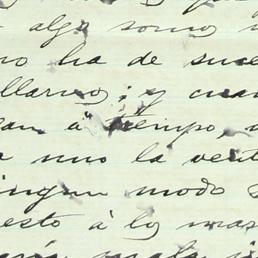 algo somo
no ha de suce
llarnos; y cuan
ean á tiempo,
a uno la vent
ningun modo s
esto á los mas